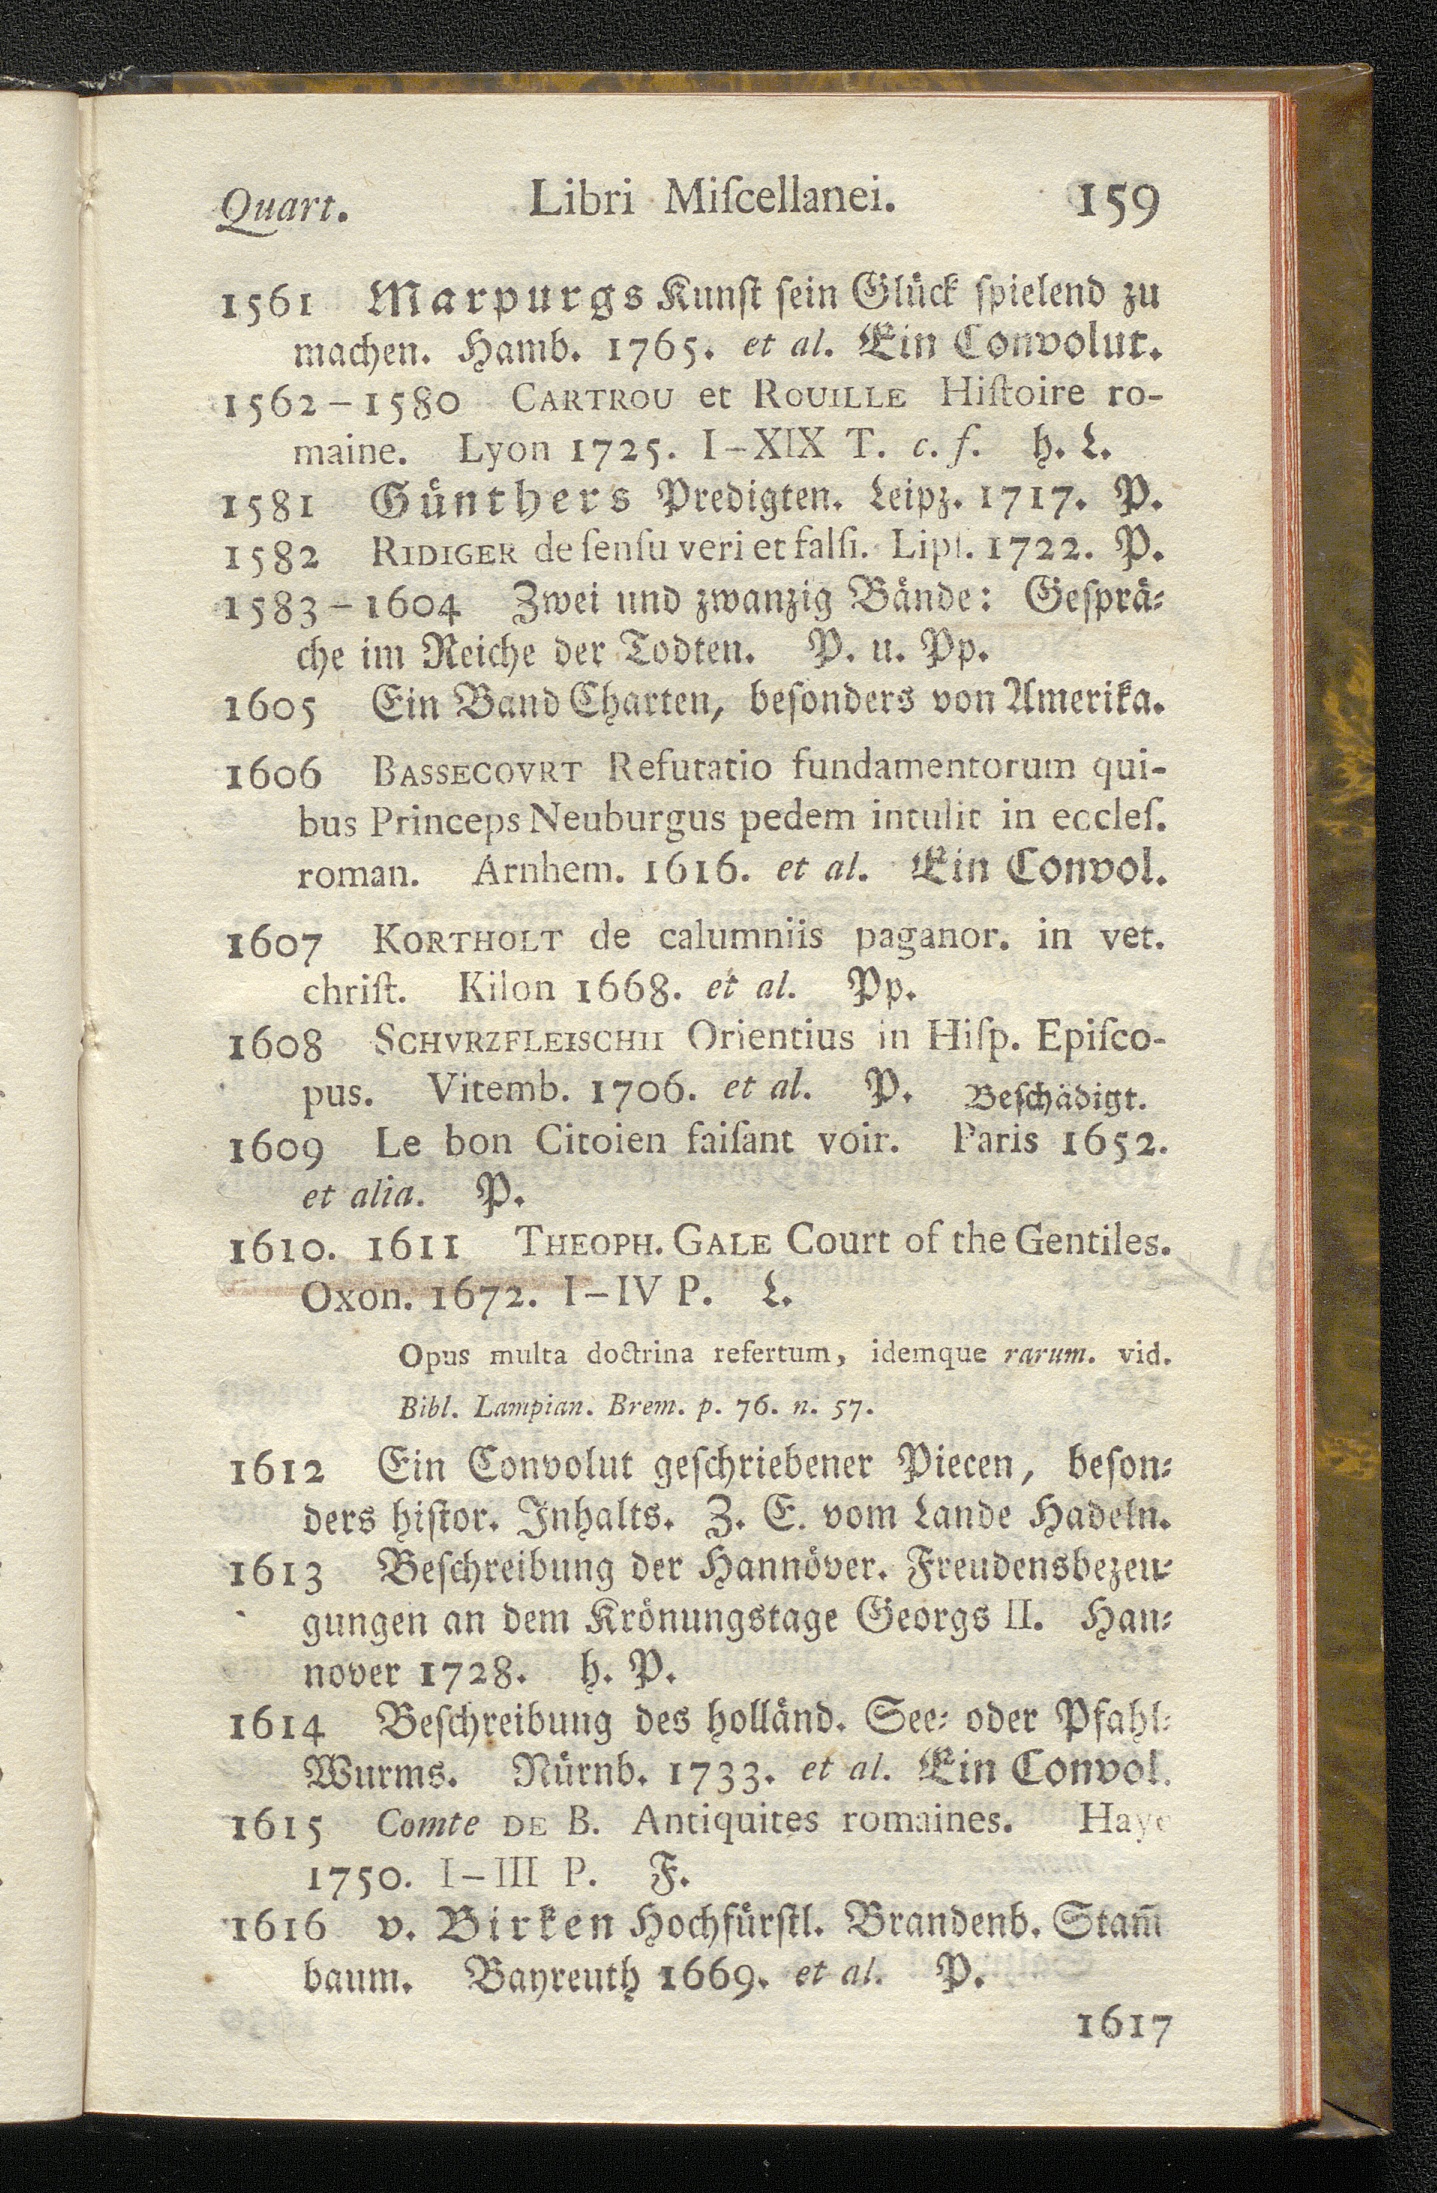 Quart. Libri Miſcellanei. 159
1561 Marpurgs Kunſt ſein Glück ſpielend zu
machen. Hamb. 1765. et al. Ein Convolut.
1562–1580 CARTROU et ROUILLE Hiſtoire ro-
maine. Lyon 1725. I–XIX T. c. f. h. L.
1581 Günthers Predigten. Leipz. 1717. P.
1582 RIDIGER de ſenſu veri et falſi. Lipſ. 1722. P.
1583–1604 Zwei und zwanzig Bände: Geſprä-
che im Reiche der Todten. P. u. Pp.
1605 Ein Band Charten, beſonders von Amerika.
1606 BASSECOVRT Refutatio fundamentorum qui-
bus Princeps Neuburgus pedem intulit in eccleſ.
roman. Arnhem. 1616. et al. Ein Convol.
1607 KORTHOLT de calumniis paganor. in vet.
chriſt. Kilon 1668. et al. Pp.
1608 SCHVRZFLEISCHII Orientius in Hiſp. Epiſco-
pus. Vitemb. 1706. et al. P. Beſchädigt.
1609 Le bon Citoien faiſant voir. Paris 1652.
et alia. P.
1610. 1611 THEOPH. GALE Court of the Gentiles.
Oxon. 1672. I–IV P. L.
Opus multa doctrina refertum, idemque rarum. vid.
Bibl. Lampian. Brem. p. 76. n. 57.
1612 Ein Convolut geſchriebener Piecen, beſon-
ders hiſtor. Inhalts. Z. E. vom Lande Hadeln.
1613 Beſchreibung der Hannöver. Freudensbezeu-
gungen an dem Krönungstage Georgs II. Han-
nover 1728. h. P.
1614 Beſchreibung des holländ. See- oder Pfahl-
Wurms. Nürnb. 1733. et al. Ein Convol.
1615 Comte DE B. Antiquites romaines. Haye
1750. I–III P. F.
1616 v. Birken Hochfürſtl. Brandenb. Stam̄
baum. Bayreuth 1669. et al. P.
1617